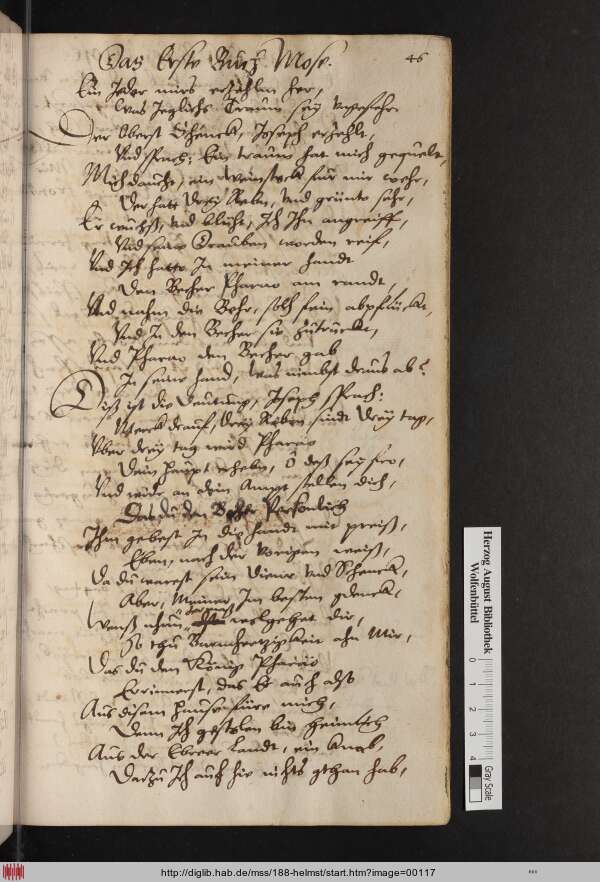 Das Erste Buch Mose. 46
Ein Jeder mirs erzehlen her,
Was Jeglichs Traum sey ungefehr.
Der Oberst Schenck, Joseph erzehlt,
Und sprach: Ein traum hat mich gequelt,
Mich daucht, ein Weinstock für mir wehr,
Der hatt drey Reben, Und grünte sehr,
Er wuchß, und blüht, Ich Ihn angreiff,
Und seine Trauben worden reif,
Und Ich hatte In meiner handt
Den Becher Pharao am randt,
Und nahm die Behr, selb fein abpflückt,
Und In den Becher sie zutrückt,
Und Pharao den Becher gab
In seine hand, was nimbst draus ab?
Diß ist die Deutung, Joseph sprach:
Merck drauf, drey Reben sindt drey tag,
Uber drey tag wird Pharao
Dein haupt erheben, O deß sey fro,
Und wider an dein Ampt stellen dich,
Das du den Becher Persönlich
Ihm gebest In die handt mit preiß,
Eben, nach der vorigen weiß,
Da du warest sein Diener und Schenck,
Aber, Meiner Im besten gdenck,
Wenß nhun wolgehet dir,
So thu Barmhertzigkeit ahn Mir,
Das du den König Pharao
Errinnerst, das Er auch also
Aus disem hause füre mich,
Denn Ich gestolen bin heimlich
Aus der Ebreer landt, ein knab,
Darzu Ich auch hie nichts gthan hab,
Herzog August Bibliothek
Wolfenbüttel
0 1 2 3 4
Gray Scale
http://diglib.hab.de/mss/188-helmst/start.htm?image=00117